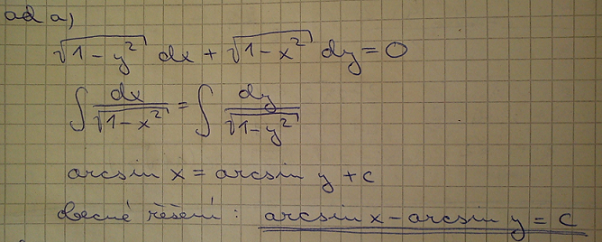 ad a)
√(1-y²) dx + √(1-x²) dy = 0
∫ dx/√(1-x²) = ∫ dy/√(1-y²)
arcsin x = arcsin y + c
obecné řešení : arcsin x - arcsin y = c